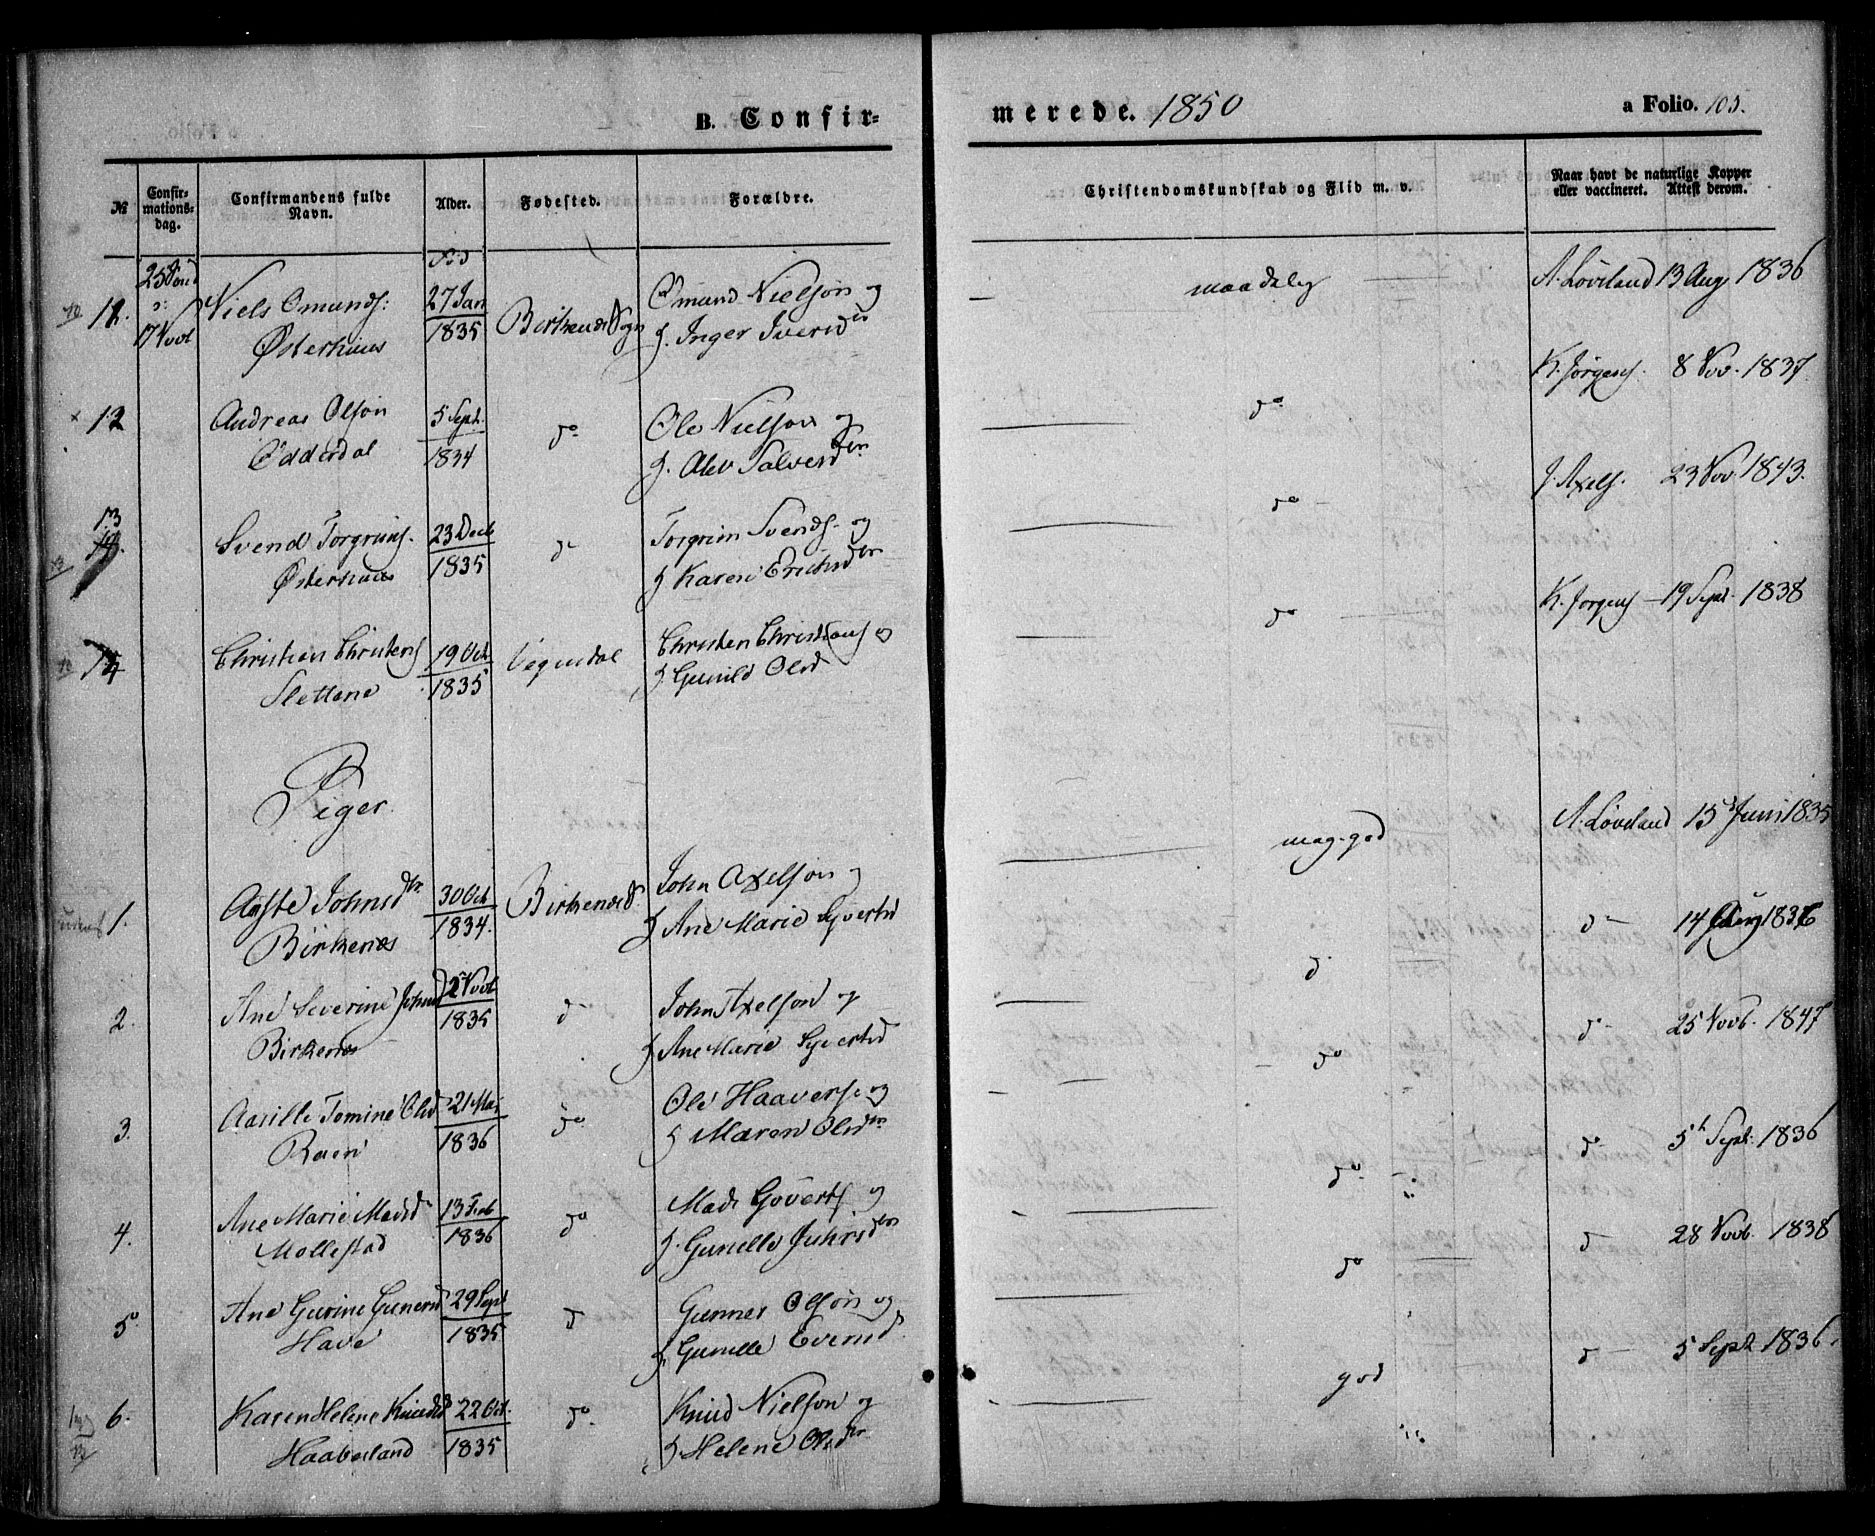 B. Confir-
merede. 1850
a Folio. 105.
№
Confir-
mations-
dag.
Confirmandens fulde
Navn.
Alder.
Fødested.
Forældre.
Christendomskundskab og Flid m. v.
Naar havt de naturlige Kopper
eller vaccineret. Attest derom.
11. 25 Sønd 17 Novb
Niels Omunds: Østerhuus
27 Jan 1835
Birkenæs Sogn
Omund Nielsøn og
Inger Iversdtr
maadelig
A. Løveland 13 Aug 1836
12
Andreas Olsøn Odderdal
5 Sept. 1834
do
Ole Nielsøn og
Alev Salvesdtr
do
K. Jørgens. 8 Nov. 1837.
13
Svend Torgrims. Østerhuus
23 Decb 1835
do
Torgrim Svends. og
Karen Erichsdtr
do
J. Axels. 23 Nov 1843.
14
Christen Christens Slettene
19 Oct 1835
Vegusdal
Christen Christians og
Gunild Olsd
do
K. Jørgens 19 Sept. 1838
Piger
1.
Aaste Johnsdtr. Birkenæs
30 Oct 1834.
Birkenæs
John Axelsøn og
Ane Marie Syvertsd
meg. god
A. Løveland 15 Juni 1835
2.
Ane Severine Johnsd Birkenæs
27 Novb 1835
do
John Axelsøn og
Ane Marie Syvertsd
do
do 14 1836
3.
Aasille Tomine Olsd Raen
21 Mai 1836
do
Ole Haavers. og
Maren Olsdtr
do
do 25 Novb. 1847
4.
Ane Marie Madsd Mollestad
13 Feb 1836
do
Mads Goverts og
Gunelle Juhrsdtr
do
do 5 Sept. 1836
5
Ane Gurine Gunersd Have
29 Sept 1835
do
Gunner Olsøn og
Gunelle Evensd.
do
do 28 Novb. 1838
6.
Karen Helene Knudsd Haaberland
22 Oct. 1835
do
Knud Nielsøn og
Helene Olsdtr
god
do 5 Sept 1836.